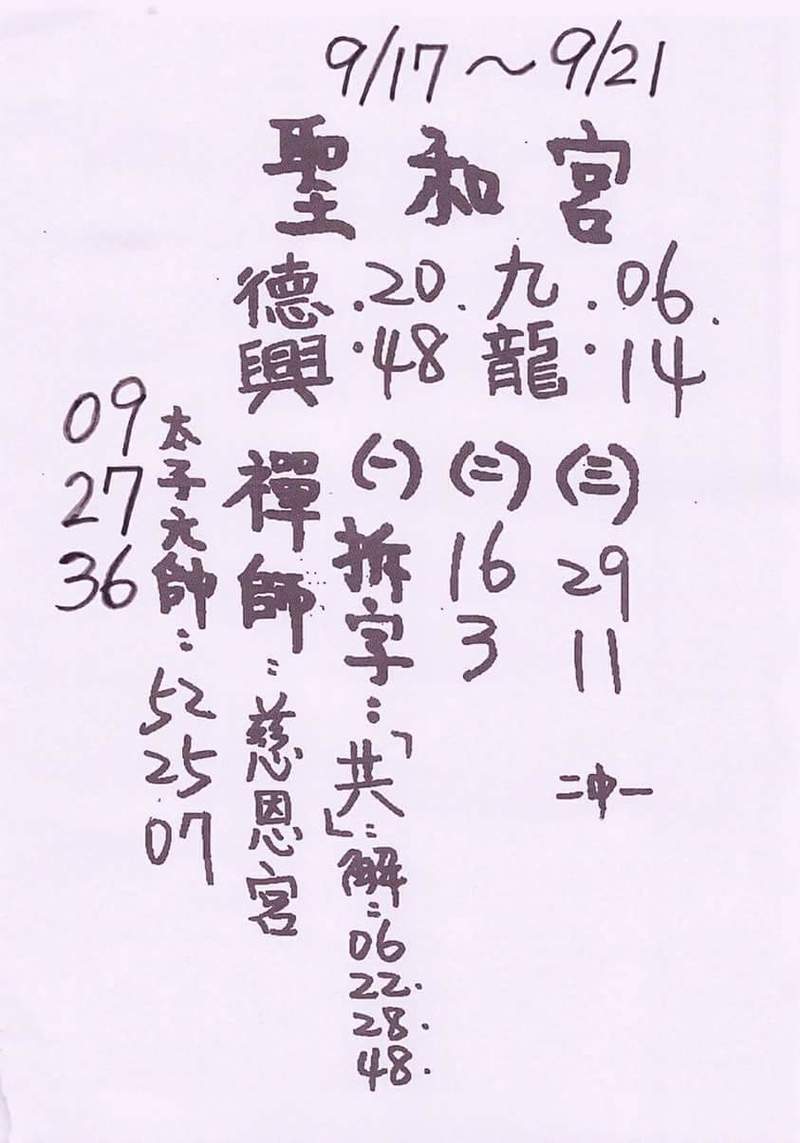 9/17～9/21
聖和宮
德興：20.48
九龍：06.14
(一)拆字：「共」：解：06 22.28.48.
(二)16 3
(三)29 11
二中一
禪師：慈恩宮
太子元帥：52 25 07
09 27 36